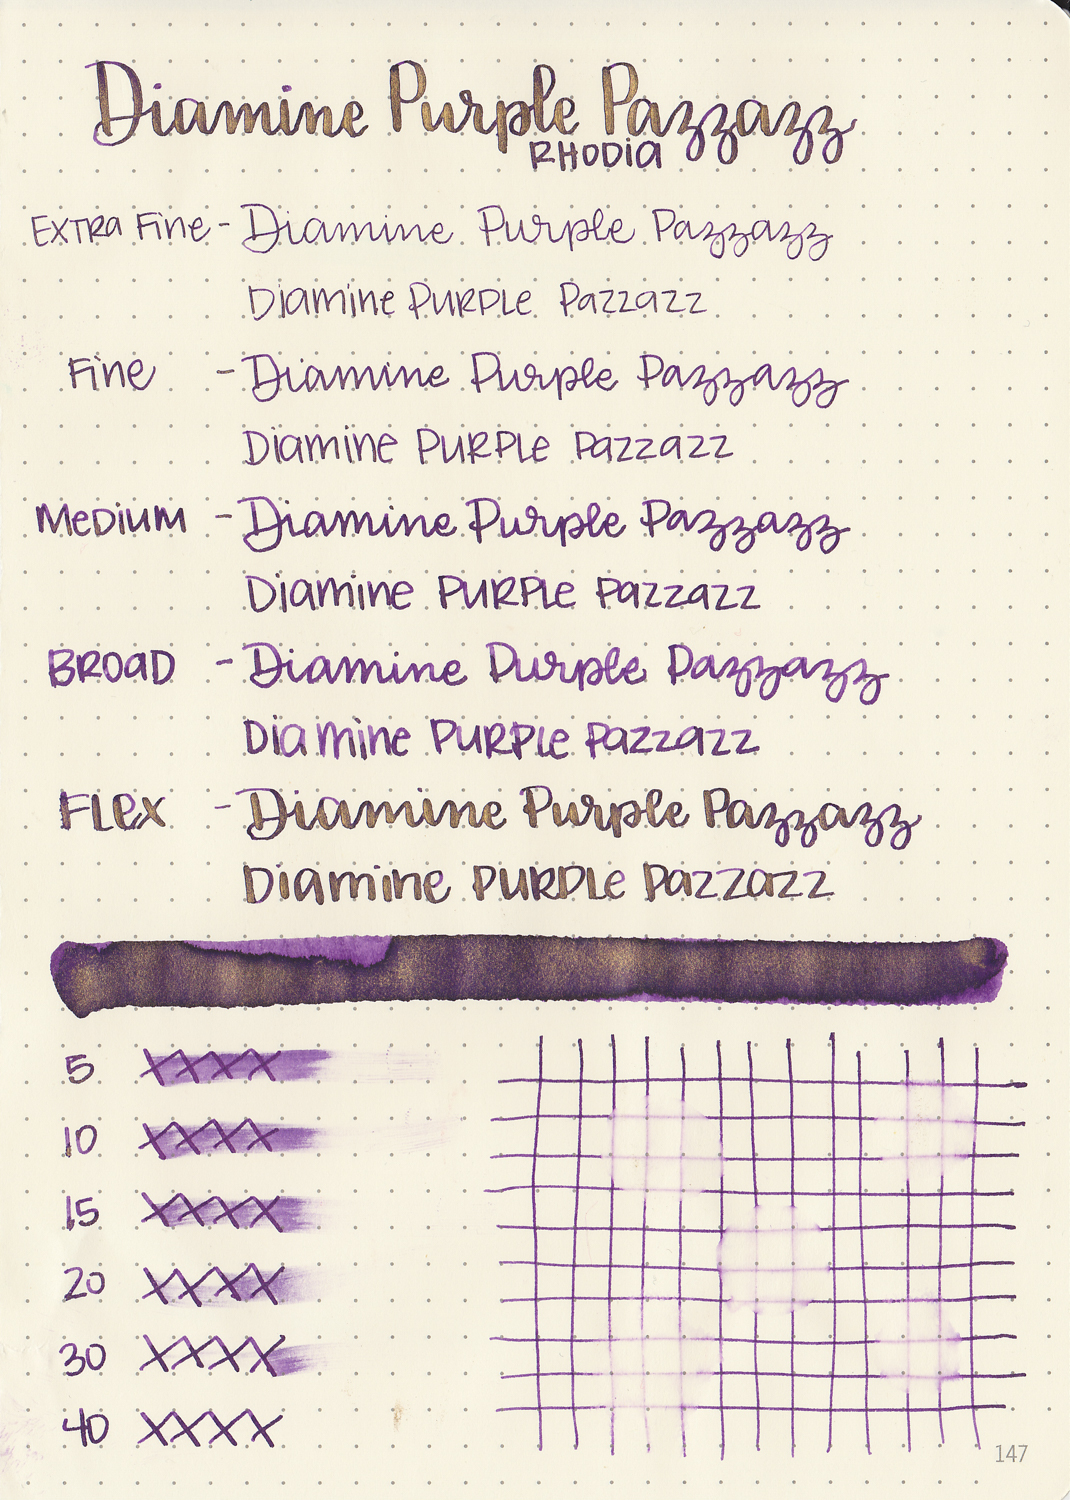 Diamine Purple Pazzazz
RHODIA
Extra Fine - Diamine Purple Pazzazz
Diamine Purple Pazzazz
Fine - Diamine Purple Pazzazz
Diamine Purple Pazzazz
Medium - Diamine Purple Pazzazz
Diamine Purple Pazzazz
Broad - Diamine Purple Pazzazz
Diamine Purple Pazzazz
Flex - Diamine Purple Pazzazz
Diamine Purple Pazzazz
5 XXXX
10 XXXX
15 XXXX
20 XXXX
30 XXXX
40 XXXX
147